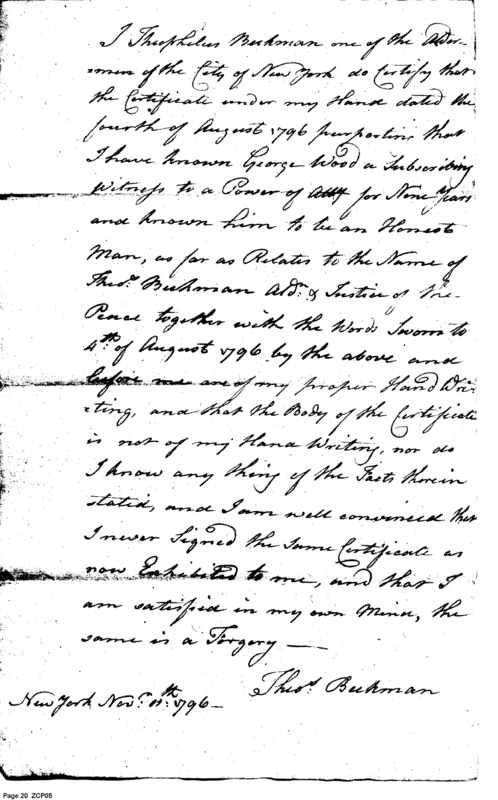 I Theophelus Beekman one of the Alder-
-men of the City of New York do Certify that
the Certificate under my Hand dated the
fourth of August 1796 purporting that
I have known George Wood a Subscribing
Witness to a Power of Atty for Nine years
and known him to be an Honest
Man, as far as Relates to the Name of
Theos. Beekman Aldn. & Justice of the
Peace together with the Words Sworn to
4th. of August 1796 by the above and
before me are of my proper Hand Wri-
-ting, and that the Body of the Certificate
is not of my Hand Writing, nor do
I know any thing of the Facts therein
stated, and I am well convinced that
I never Signed the same Certificate as
now Exhibited to me, and that I
am satisfied in my own Mind, the
same is a Forgery —
Theos. Beekman
New York Novr. 11th. 1796 –
Page 20 ZCP05